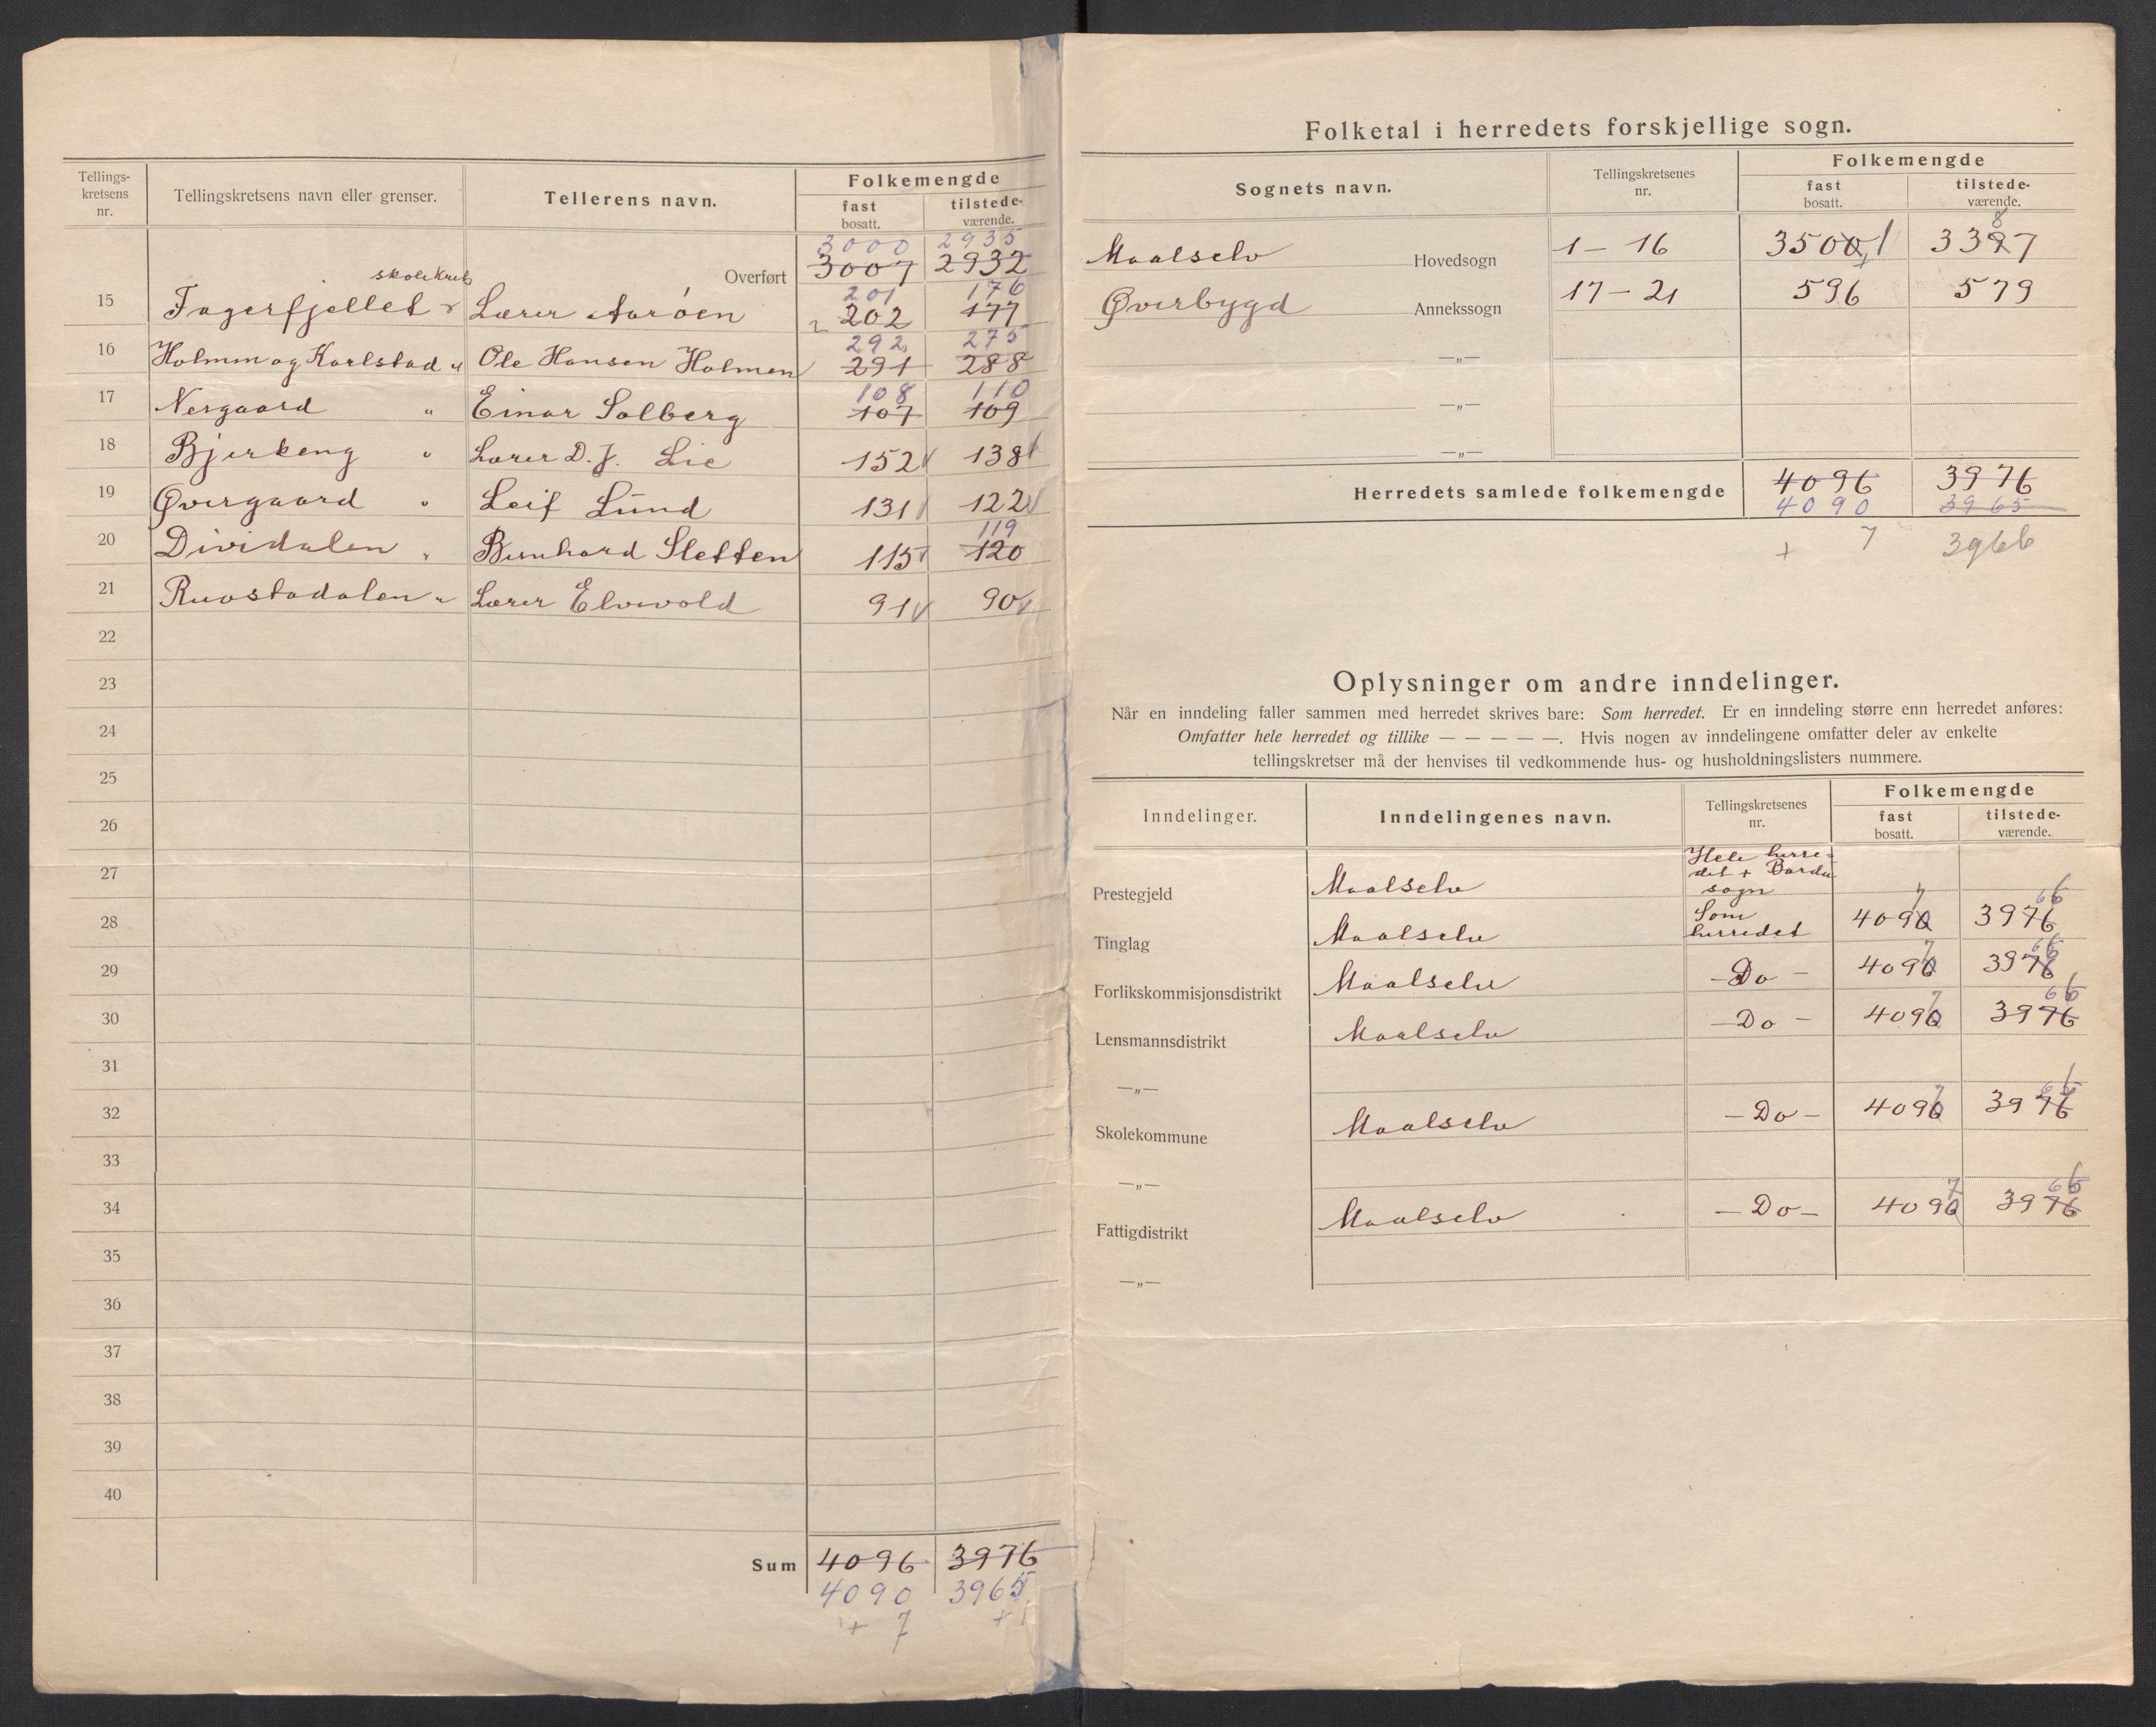 Tellings-
kretsens
nr.
Tellingskretsens navn eller grenser.
Tellerens navn.
Folkemengde
fast
bosatt.
tilstede-
værende.
3000 2935
Overført 3007 2932
skolekrets
201 176
15 Fagerfjellet Lærer Aarøen 202 177
292 275
16 Holmen og Karlstad " Ole Hansen Holmen 291 288
108 110
17 Nergaard " Einar Solberg 107 109
18 Bjerkeng " Lærer D. J. Lie 152 138
19 Øvergaard " Leif Lund 131 122
119
20 Dividalen " Bernhard Sletten 115 120
21 Ruostadalen " Lærer Elvevold 91 90
22
23
24
25
26
27
28
29
30
31
32
33
34
35
36
37
38
39
40
Sum 4096 3976
4090 3965
+ 7 + 1
Folketal i herredets forskjellige sogn.
Sognets navn.
Tellingskretsenes
nr.
Folkemengde
fast
bosatt.
tilstede-
værende.
8
Maalselv Hovedsogn 1 - 16 3500 1 3397
Øverbygd Annekssogn 17 - 21 596 579
—„—
—„—
—„—
Herredets samlede folkemengde 4096 3976
4090 3965
+ 7 3966
Oplysninger om andre inndelinger.
Når en inndeling faller sammen med herredet skrives bare: Som herredet. Er en inndeling større enn herredet anføres:
Omfatter hele herredet og tillike — — — — —. Hvis nogen av inndelingene omfatter deler av enkelte
tellingskretser må der henvises til vedkommende hus- og husholdningslisters nummere.
Inndelinger.
Inndelingenes navn.
Tellingskretsenes
nr.
Folkemengde
fast
bosatt.
tilstede-
værende.
Prestegjeld Maalselv Hele herre-
det + Bardu
sogn
7 66
Tinglag Maalselv Som
herredet 4090 3976
7 66
Forlikskommisjonsdistrikt Maalselv - Do - 4090 3976
7 66
Lensmannsdistrikt Maalselv - Do - 4090 3976
—„—
7 66
Skolekommune Maalselv - Do - 4090 3976
—„—
7 66
Fattigdistrikt Maalselv - Do - 4090 3976
—„—